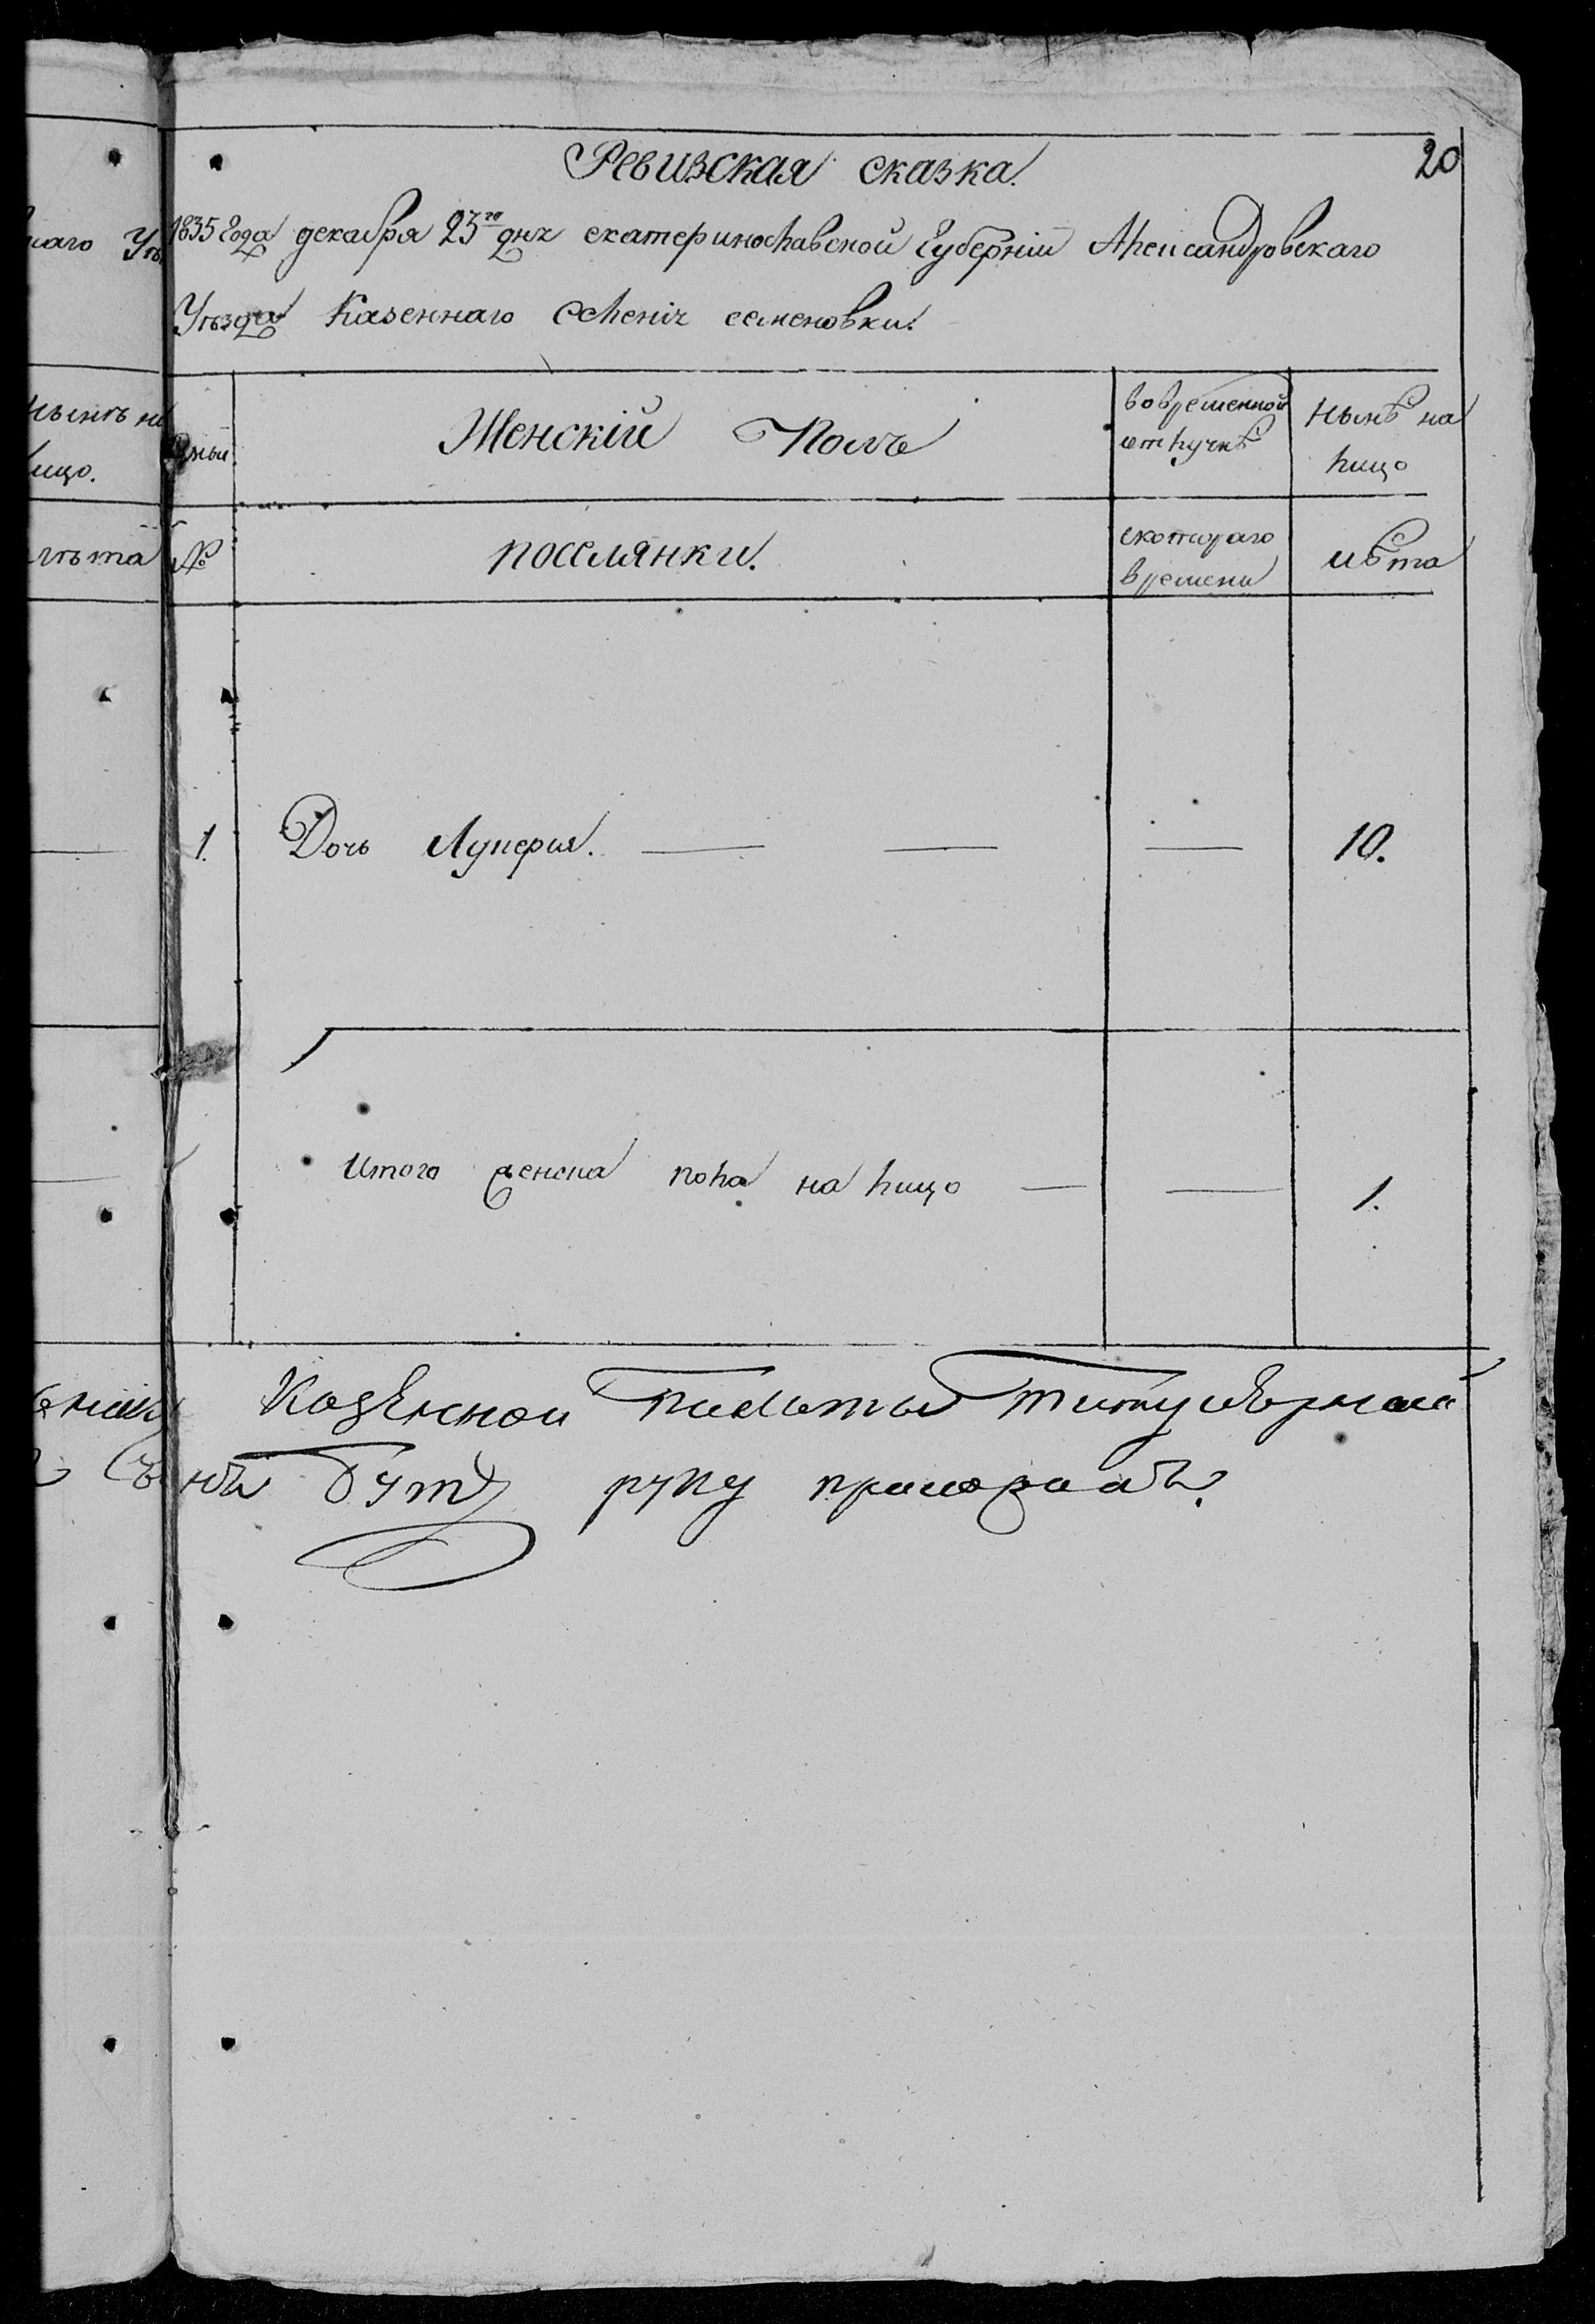 Ревизская сказка.
20
1835 Года декабря 23го дня екатеринославской Губерніи Александровскаго
Уѣзда Казеннаго Селенія семеновки.
наго Уѣ
нынѣ на
лицо.
лѣта
Женскій Полъ
вовременной
отлучкѣ
Нынѣ на
лицо
№
поселянки.
скотораго
времени
лѣта
1. Дочь Лукерия. — — — 10.
Итого женска пола на лицо — — 1.
Казенной Палаты Титулярный
руку приложилъ.